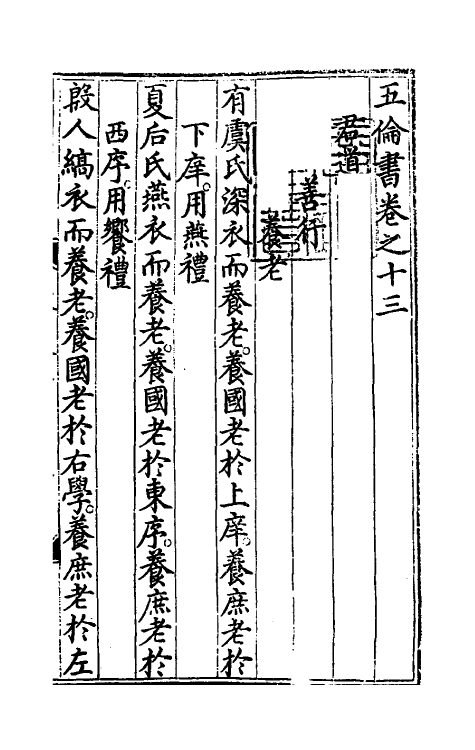 五倫書卷之十三
君道
善行
養老
有虞氏深衣而養老。養國老於上庠。養庶老於
下庠。用燕禮
夏后氏燕衣而養老。養國老於東序。養庶老於
西序。用饗禮
殷人縞衣而養老。養國老於右學。養庶老於左